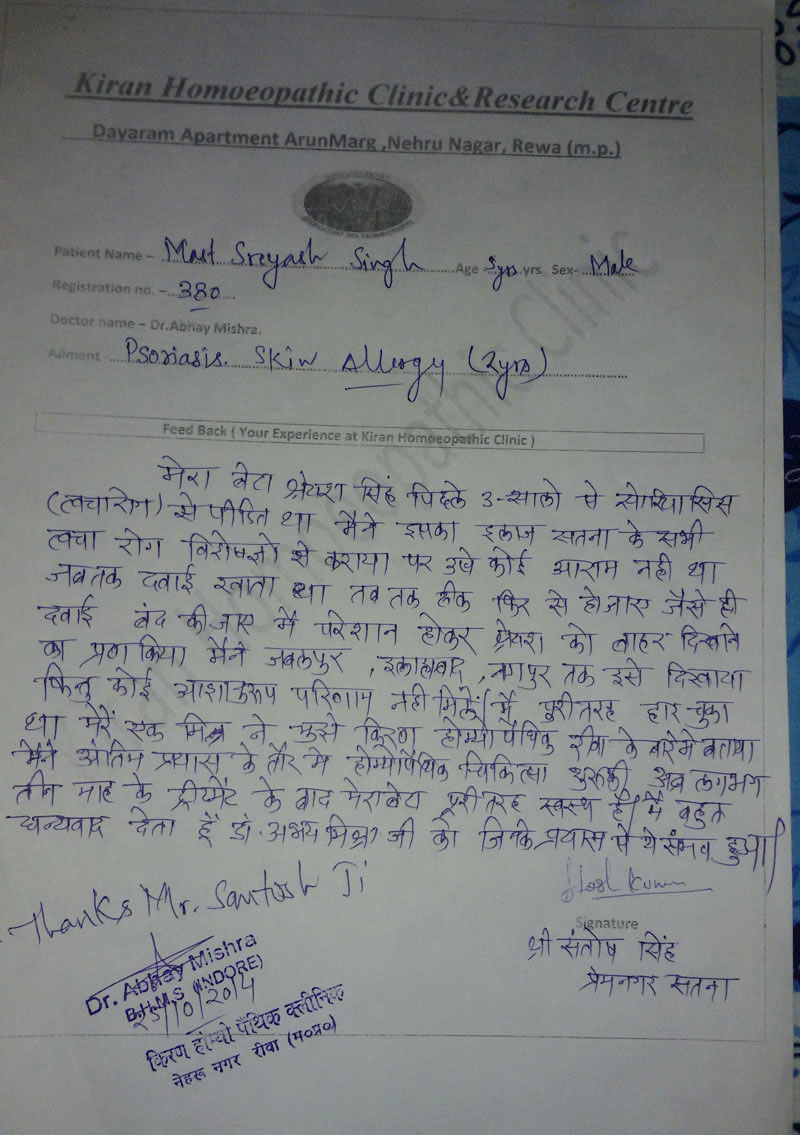 Kiran Homoeopathic Clinic&Research Centre
Dayaram Apartment ArunMarg ,Nehru Nagar, Rewa (m.p.)
Patient Name – Mast Sreyash Singh Age 5yrs yrs Sex- Male
Registration no. – 380
Doctor name – Dr.Abhay Mishra.
Ailment - Psoriasis. Skin Allergy (2yrs)
Feed Back ( Your Experience at Kiran Homoeopathic Clinic )
मेरा बेटा श्रेयश सिंह पिछले 3-सालो से सोरियासिस
(त्वचारोग) से पीडित था मैने इसका इलाज सतना के सभी
त्वचा रोग विशेषज्ञो से कराया पर उसे कोई आराम नही था
जबतक दवाई खाता था तब तक ठीक फिर से होजाए जैसे ही
दवाई बंद की जाए मै परेशान होकर श्रेयश को बाहर दिखाने
का प्रण किया मैने जबलपुर , इलाहाबाद , नागपुर तक इसे दिखाया
किन्तु कोई आशानुरूप परिणाम नही मिले। मै पूरीतरह हार चुका
था मेरें एक मित्र ने मुझे किरण होम्योपैथिक रीवा के बारेमे बताया
मैने अंतिम प्रयास के तौर मे होम्योपैथिक चिकित्सा शुरूकी अब लगभग
तीन माह के ट्रीटमेंट के बाद मेराबेटा पूरीतरह स्वस्थ है। मैं बहुत
धन्यवाद देता हूँ डॉ. अभय मिश्रा जी को जिनके प्रयास से ये संभव हुआ।
Thanks Mr. Santosh Ji
Signature
श्री संतोष सिंह
प्रेमनगर सतना
Dr. Abhay Mishra
B.H.M.S (INDORE)
25/10/2014
किरण होम्यो पैथिक क्लीनिक
नेहरू नगर रीवा (म०प्र०)